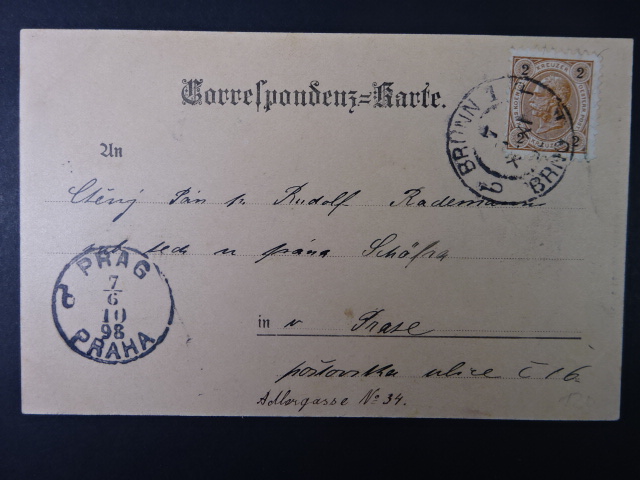 Correspondenz=Karte.
2 KREUZER 2
2 2
BRÜNN 1
BRNO
An
Ctěný Pán p. Rudolf Rademann
u pána Schöfra
in v Praze
poštovska ulice č 16.
Adlergasse No 34.
PRAG
7
6
10
98
PRAHA